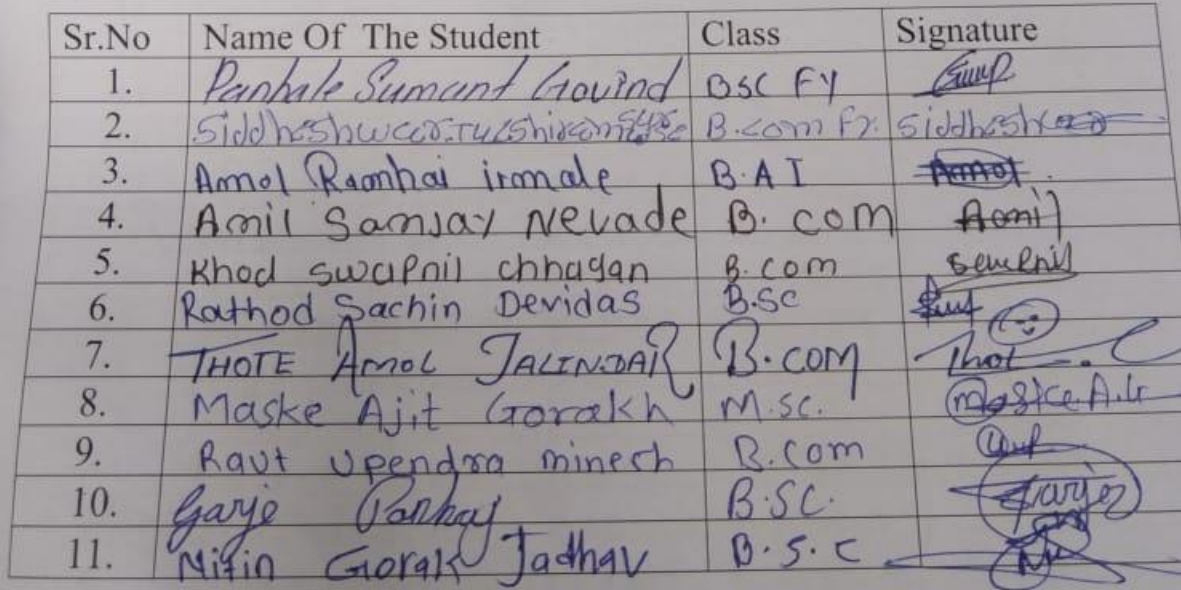 Sr.No Name Of The Student Class Signature
1. Panhale Sumant Govind BSC FY
2. B.com Fy. Siddhesh
3. Amol irmale B.A I Amol
4. Amil Samjay Nevade B. com Aomil
5. Khod swapnil chhagan B.com
6. Rathod Sachin Devidas B.Sc
7. THOTE AMOL JALINDAR B.com Thot
8. Maske Ajit Gorakh M.sc. Maske A.G
9. Raut Upendra minesh B.com
10. Garje Pankaj B.SC. Garje
11. Nitin Gorak Jadhav B.S.C